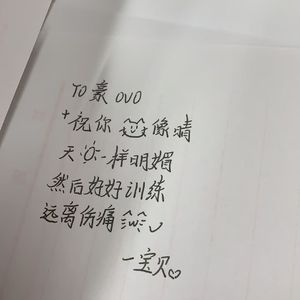 TO 豪 OVO
+祝你 像晴
天 一样明媚
然后好好训练
远离伤痛
一宝贝♡